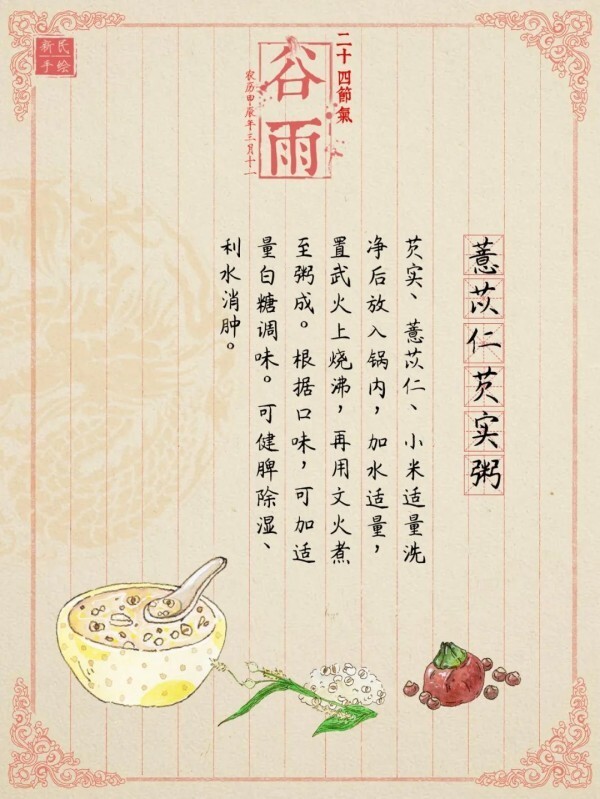 新民
手绘
二十四節氣
谷雨
农历甲辰年三月十一
薏苡仁芡实粥
芡实、薏苡仁、小米适量洗
净后放入锅内，加水适量，
置武火上烧沸，再用文火煮
至粥成。根据口味，可加适
量白糖调味。可健脾除湿、
利水消肿。